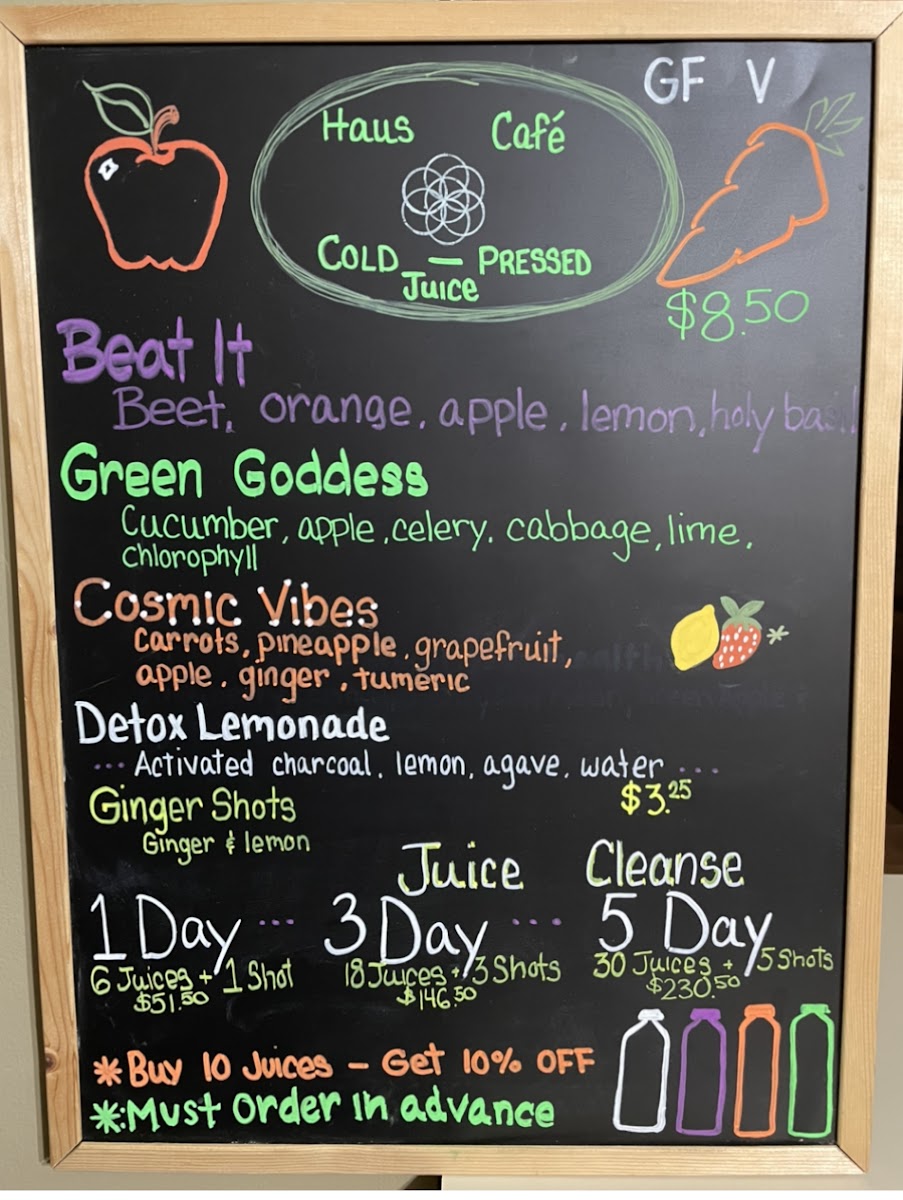 GF V
Haus Café
COLD - PRESSED
Juice
$8.50
Beat It
Beet, orange, apple, lemon, holy basil
Green Goddess
Cucumber, apple, celery, cabbage, lime,
chlorophyll
Cosmic Vibes
carrots, pineapple, grapefruit,
apple, ginger, tumeric
Detox Lemonade
... Activated charcoal, lemon, agave, water ...
Ginger Shots $3.25
Ginger & lemon
Juice Cleanse
1 Day ... 3 Day ... 5 Day
6 Juices + 1 Shot 18 Juices + 3 Shots 30 Juices + 5 Shots
$51.50 $146.50 $230.50
*Buy 10 Juices - Get 10% OFF
*:Must order in advance